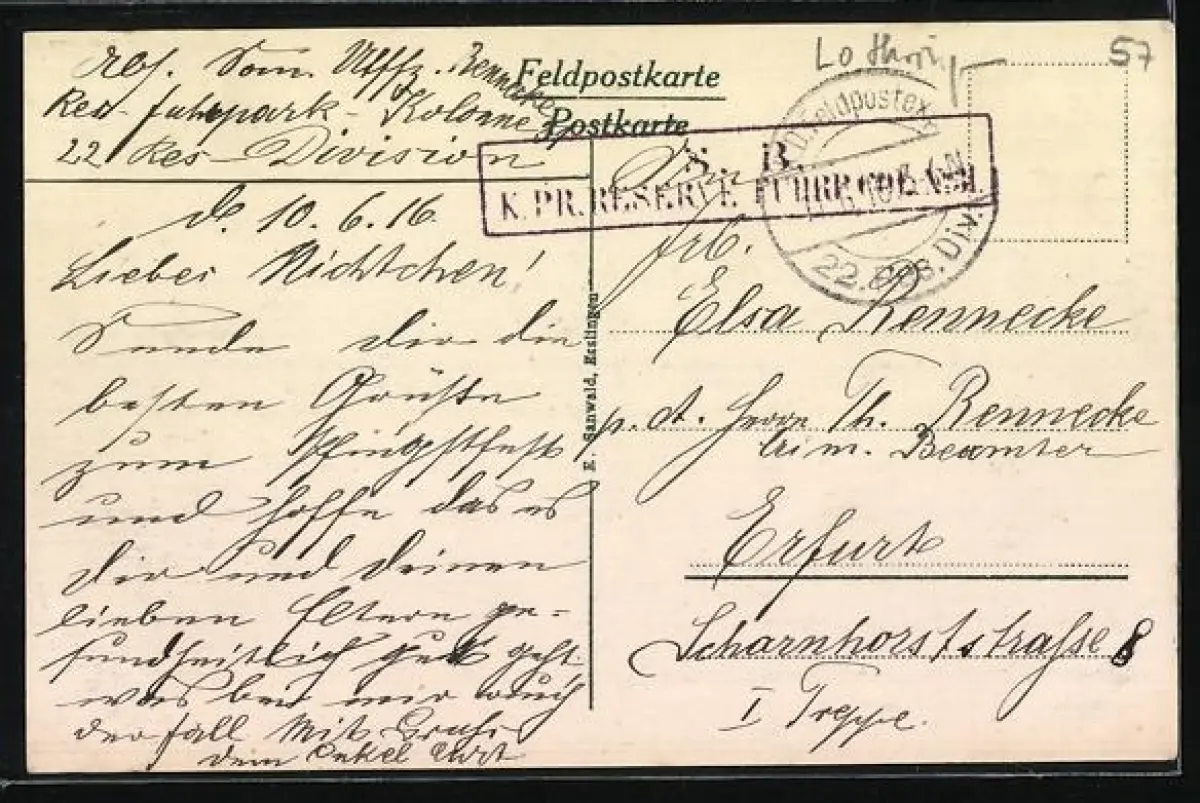 Abs. Uffz. Rennecke
Res. Fuhrpark-Kolonne
22 Res-Division
Feldpostkarte
Postkarte
Lothring
57
S. B.
K. PR. RESERVE FUHRP. KOL.
Feldpostex
22. Res. Div.
d. 10.6.16.
Liebes Nichtchen!
Sende dir die
besten Grüße
zum Pfingstfest
und hoffe das es
dir und deinen
lieben Eltern ge=
sundheitlich gut geht
was bei mir auch
der fall Mit Gruß
dein Onkel
E. Sanwald, Esslingen
An
Frl.
Elsa Rennecke
p. A. Herrn Th. Rennecke
Beamter
Erfurt
Scharnhorststraße 8
I Treppe.